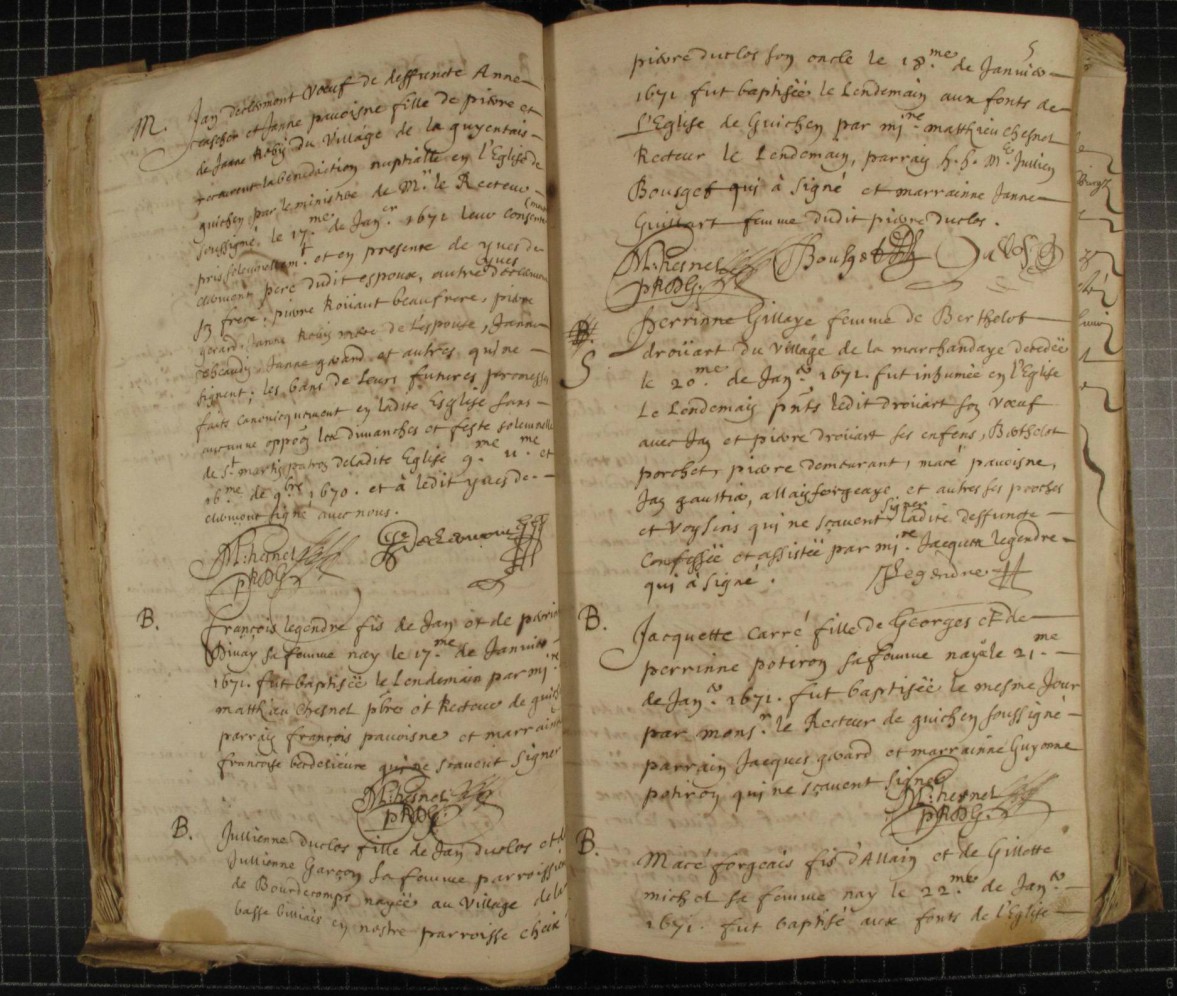 M. Jan declemont vœuf de deffuncte Anne
et Janne pavoisne fille de pierre et
de Janne Robij du Village de la guyentais
la benediction nuptialle en l'Eglise de
guichen par le ministere de Mr. le Recteur
soussigné, le 17.me de Jan.er 1671 leur
pris et en presence de yves de
clemont pere dudit espoux, autre yves declemont
so frere, pierre Roüaut beaufrere, pierre
gerard, Janne Robij mere de l'espouse, Janne
Janne gerard et autres qui ne
signent: les bans de leurs futures promesses
faits canonicquement en ladite Esglise sans
aucunne oppoõn les dimanches et feste solemnelle
de St. martin patron de ladite Eglise 9.me 11.me et
16.me de 9bre 1670. et à ledit yves de
clemont signé avec nous.
M:chesnel
PRDG.
B. François legendre fis de Jan et de
Divay sa femme nay le 17.me de Janvier
1671. fut baptiséé le Lendemain par
matthieu chesnel pbre et Recteur de
parraij françois pavoisne et marrainne
francoise qui ne scavent signer
M:chesnel
PRDG.
B. Jullienne duclos fille de Jan duclos et
Jullienne Garçon sa femme parroissiens
de Bourdecomps nayéé au Village de la
basse en nostre parroisse cheix
5
pierre duclos son oncle le 18.me de Janvier
1671 fut baptiséé le Lendemain aux fonts de
L'Eglise de Guichen par mi.re matthieu chesnel
Recteur le Lendemain, parraij h. h. M.e Jullien
Bouget qui à signé et marrainne Janne
Guillart femme dudit pierre duclos.
M:chesnel Bouget
PRDG.
B.
S perrinne Gillaye femme de Berthelot
droüart du village de la marchandaye decedéé
le 20.me de Jan.er 1671. fut inhumée en l'Eglise
Le Lendemaij pnts ledit droüart son vœuf
avec Jan et pierre droüart ses enfens, Berthelot
porcher, pierre demeurant, macé pavoisne,
Jan gaultier, allaij forgeaye, et autres ses proches
et voysins qui ne scavent signer ladite deffuncte
Confesséé et assistéé par mi.re Jacques legendre
qui à signé. Legendre
B. Jacquette Carré fille de Georges et de
perrinne potiron sa femme nayéé le 21.me
de Jan.er 1671. fut baptiséé le mesme Jour
par mons.r le Recteur de guichen soussigné
parrain Jacques gerard et marrainne Guyonne
potiron qui ne scavent signer
M:chesnel
PRDG.
B. Macé forgeais fis d'Allain et de Gillotte
michel sa femme nay le 22.me de Jan.er
1671. fut baptisé aux fonts de l'Eglise